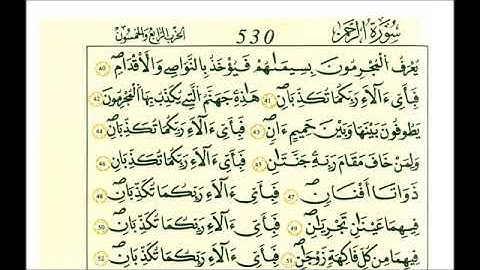 سُورَةُ الرَّحْمَٰن 530 الحِزْبُ الرَّابِعُ وَالخَمْسُونَ
يُعْرَفُ الْمُجْرِمُونَ بِسِيمَٰهُمْ فَيُؤْخَذُ بِالنَّوَٰصِي وَالْأَقْدَامِ 40
فَبِأَيِّ ءَالَآءِ رَبِّكُمَا تُكَذِّبَانِ 41 هَٰذِهِ جَهَنَّمُ الَّتِي يُكَذِّبُ بِهَا الْمُجْرِمُونَ 42
يَطُوفُونَ بَيْنَهَا وَبَيْنَ حَمِيمٍ ءَانٍ 43 فَبِأَيِّ ءَالَآءِ رَبِّكُمَا تُكَذِّبَانِ 44
وَلِمَنْ خَافَ مَقَامَ رَبِّهِ جَنَّتَٰنِ 45 فَبِأَيِّ ءَالَآءِ رَبِّكُمَا تُكَذِّبَانِ 46
ذَوَاتَا أَفْنَانٍ 47 فَبِأَيِّ ءَالَآءِ رَبِّكُمَا تُكَذِّبَانِ 48
فِيهِمَا عَيْنَٰنِ تَجْرِيَٰنِ 49 فَبِأَيِّ ءَالَآءِ رَبِّكُمَا تُكَذِّبَانِ 50
فِيهِمَا مِن كُلِّ فَٰكِهَةٍ زَوْجَٰنِ 51 فَبِأَيِّ ءَالَآءِ رَبِّكُمَا تُكَذِّبَانِ 52